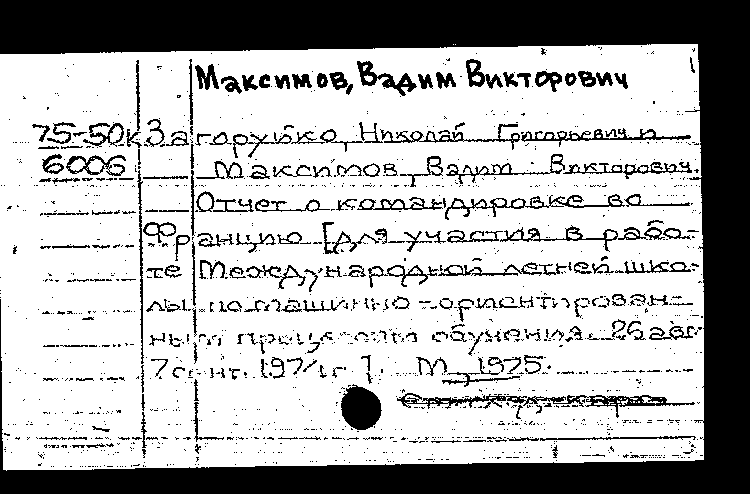 Максимов, Вадим Викторович
75-50к Загоруйко, Николай Григорьевич и
6006 Максимов, Вадим Викторович.
Отчет о командировке во
Францию [для участия в рабо-
те Международной летней шко-
лы по машинно-ориентирован-
ным процессам обучения. 26 авг
7 сент. 1974г.]. М, 1975.